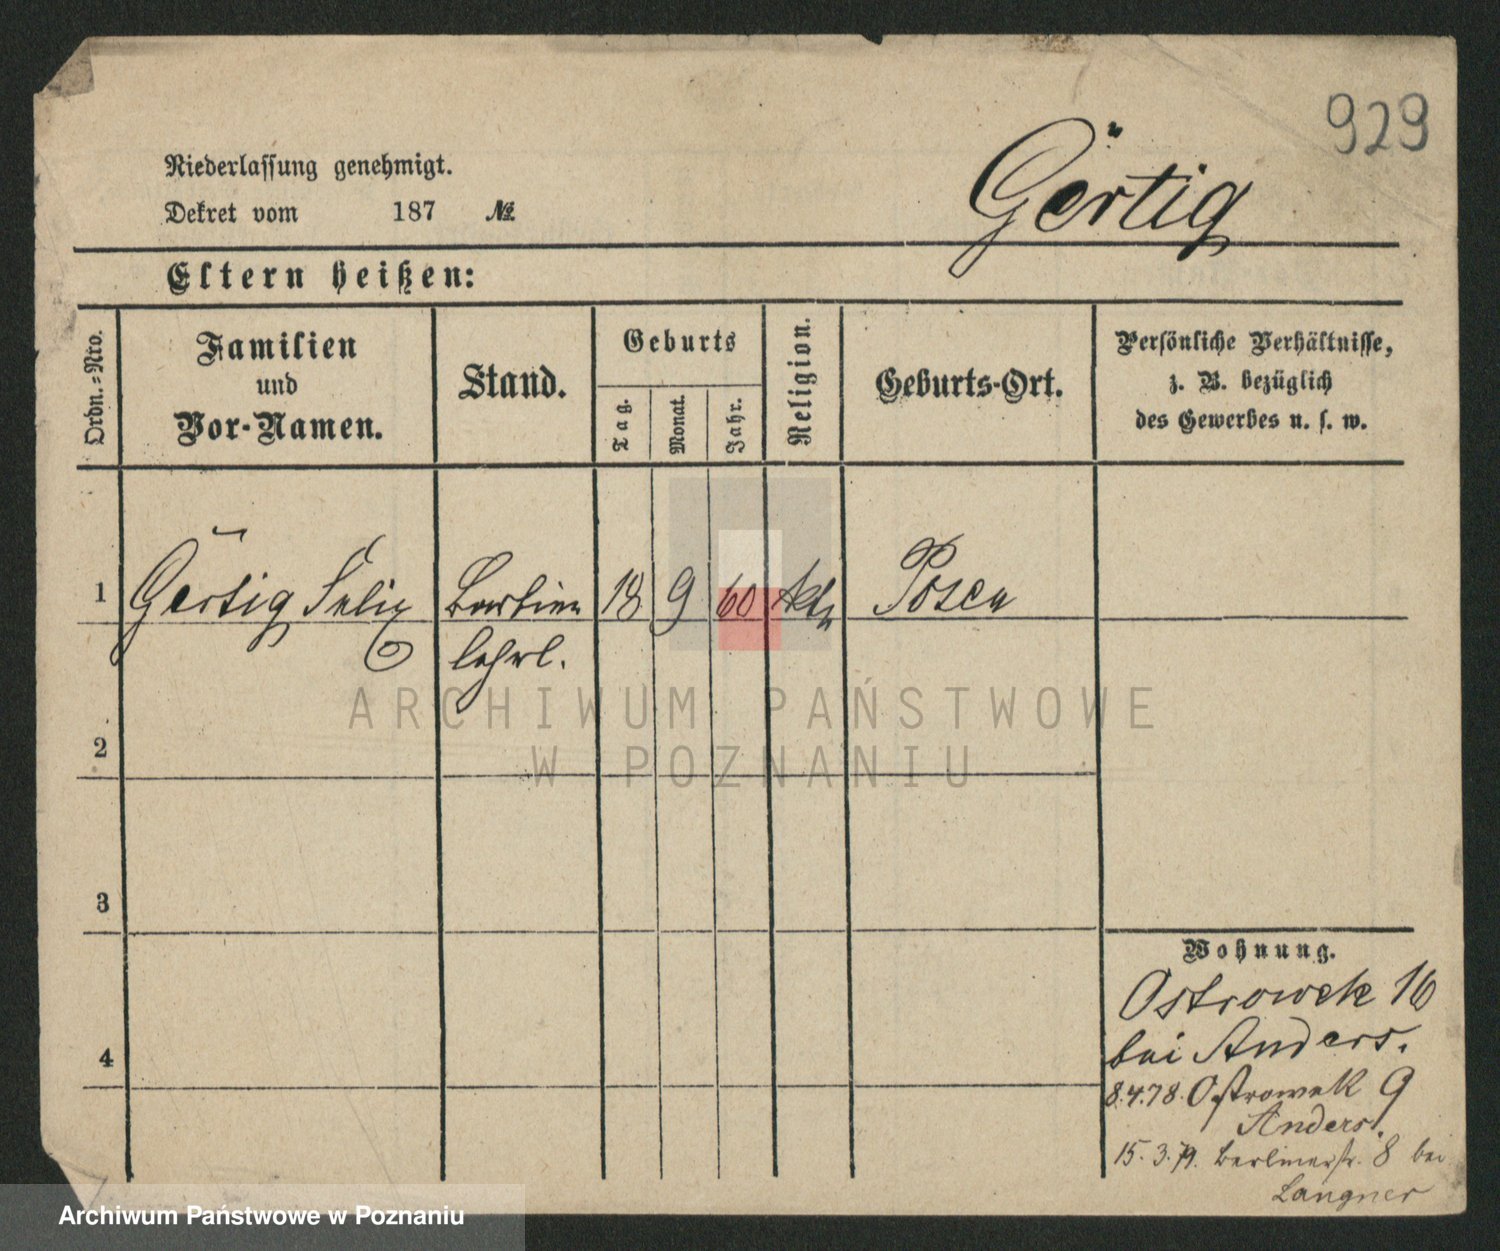 929
Görtig
Niederlassung genehmigt.
Dekret vom 187 №
Eltern heißen:
Ordn.=Nro.
Familien
und
Vor-Namen.
Stand.
Geburts
Tag.
Monat.
Jahr.
Religion.
Geburts-Ort.
Persönliche Verhältnisse,
z. B. bezüglich
des Gewerbes u. s. w.
1 Görtig Felix 18 9 60 kth Posen
lehrl.
2
3
4
Wohnung.
Ostrowek 16
bei Anders.
8.4.78. Ostrowek 9
Anders.
15.3.79. Berlinerstr. 8 bei
Langner
ARCHIWUM PAŃSTWOWE
W POZNANIU
Archiwum Państwowe w Poznaniu